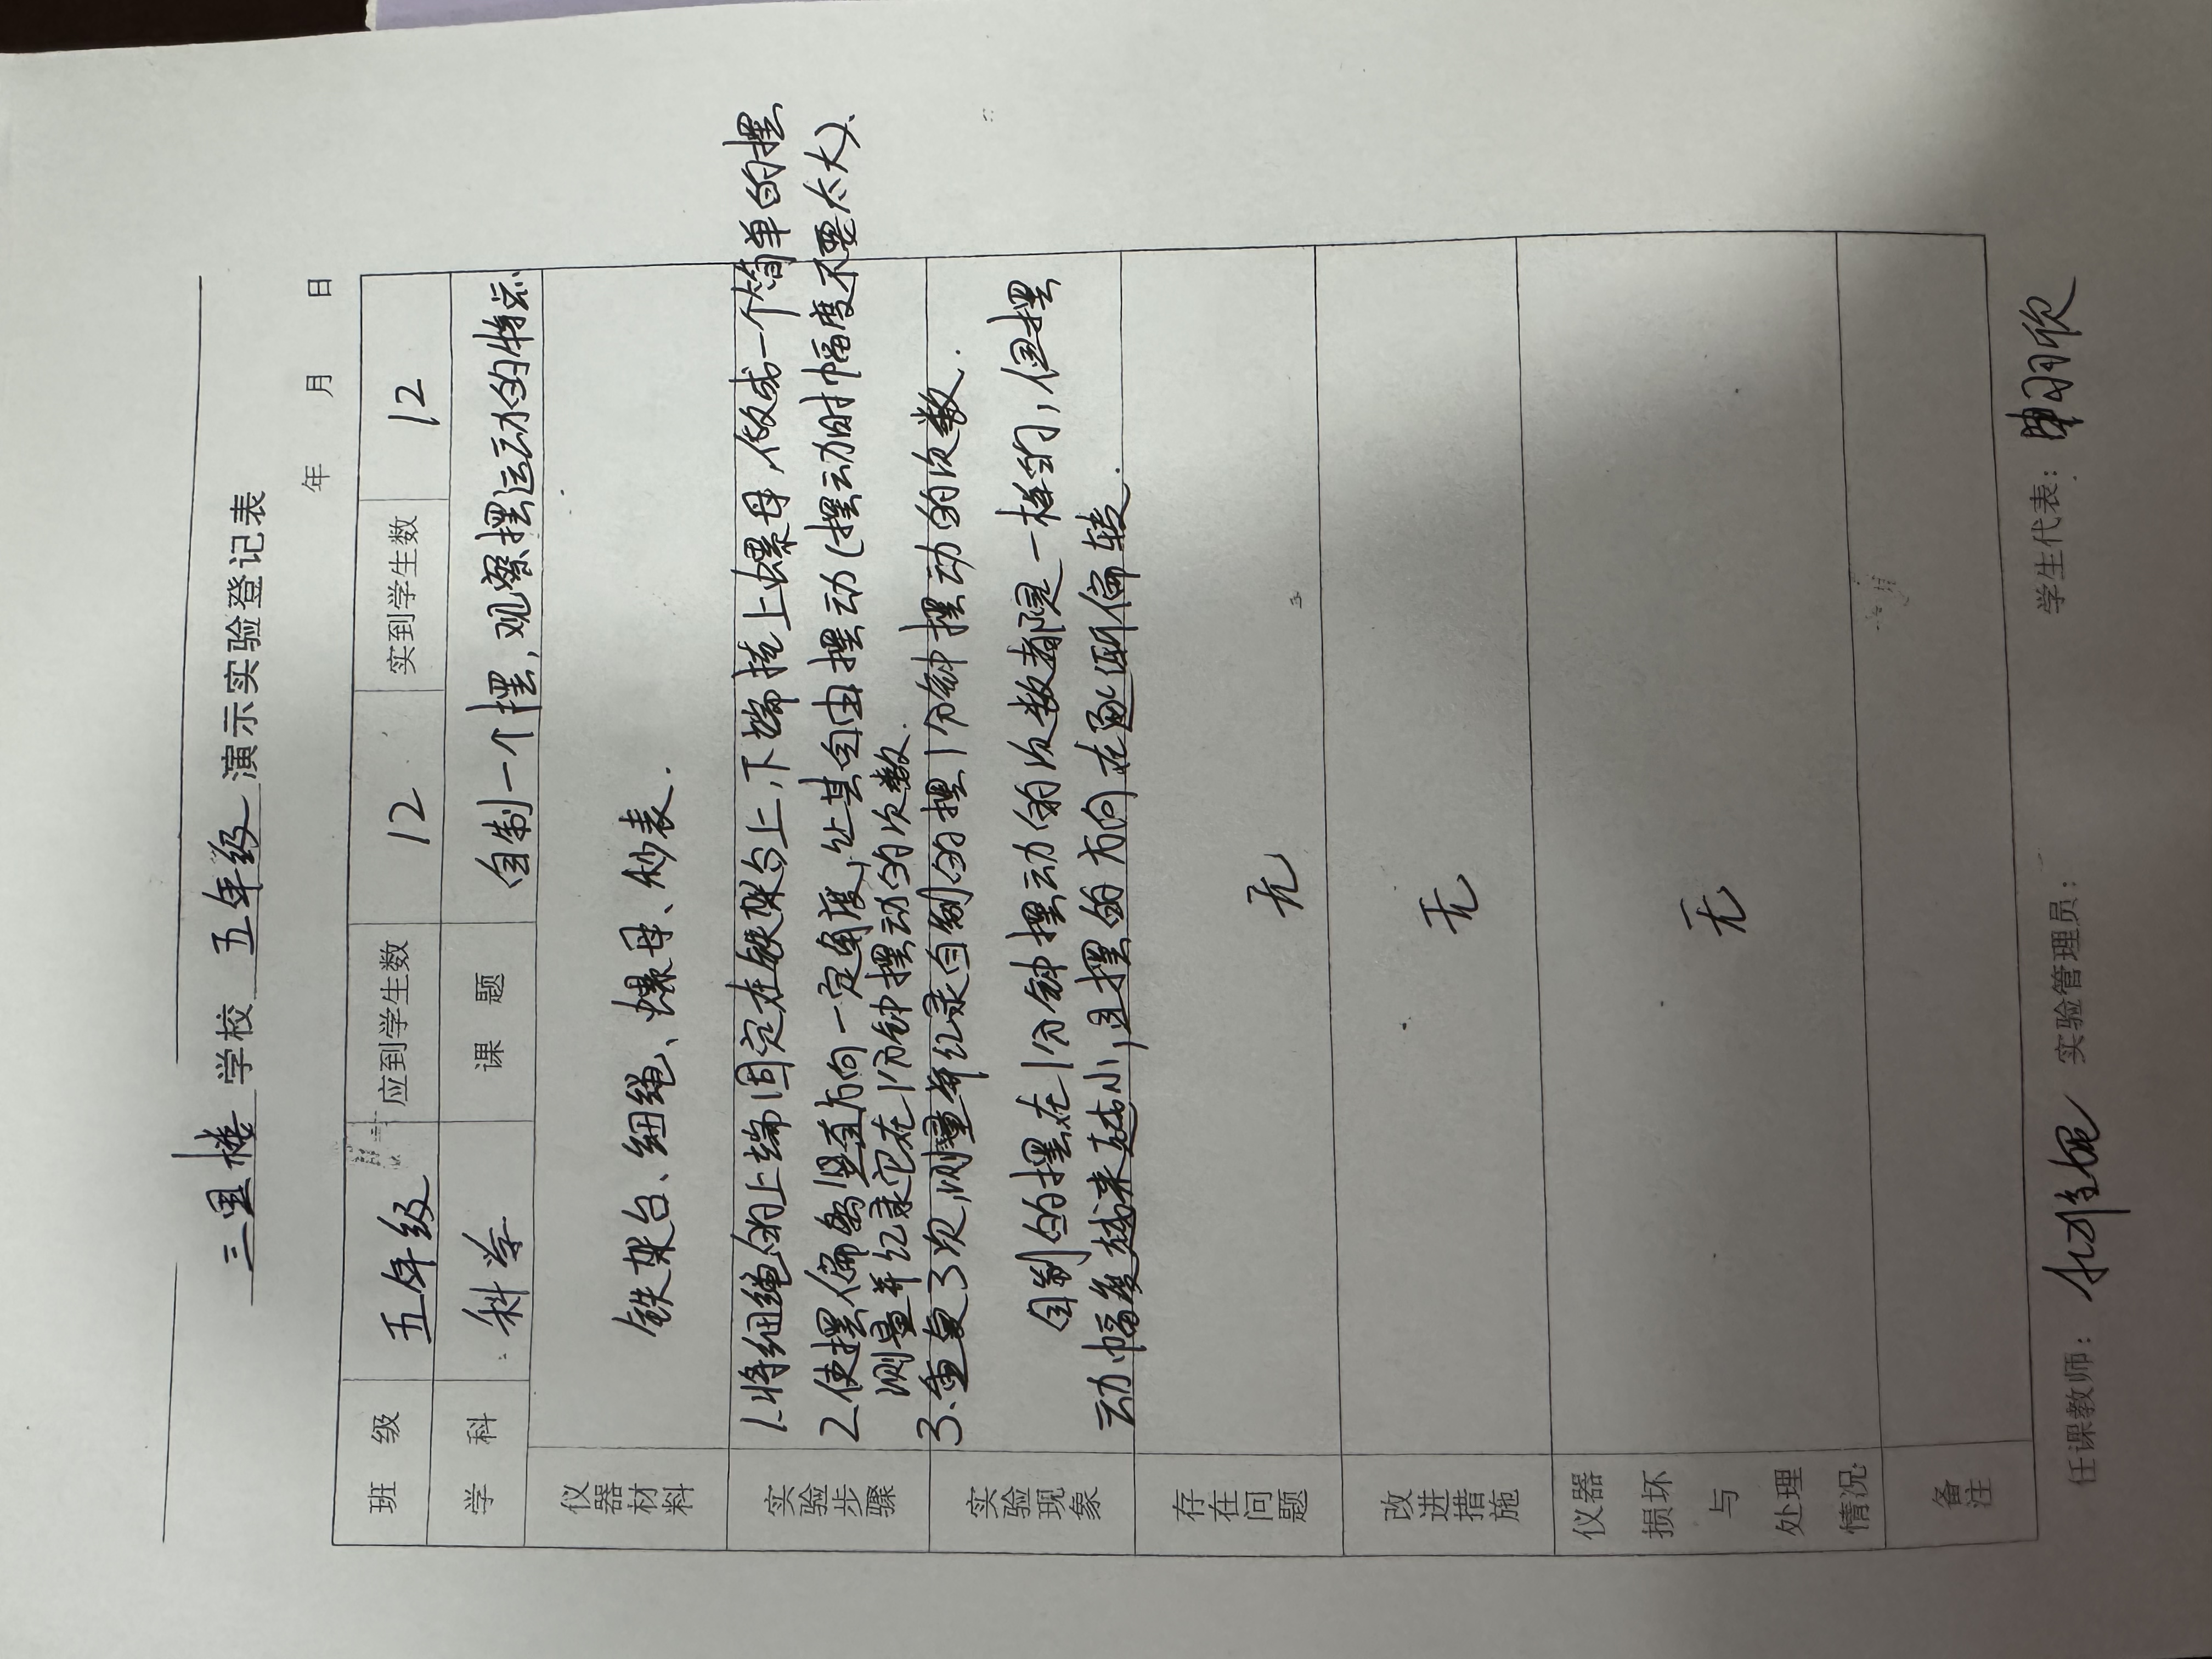 三里楼 学校 五年级 演示实验登记表
年 月 日
班 级 五年级 应到学生数 12 实到学生数 12
学 科 科学 课 题 自制一个摆,观察摆运动的特点
仪器材料 铁架台、细绳、螺母、秒表.
实验步骤
1.将细绳的上端固定在铁架台上,下端挂上螺母,做成一个简单的摆
2.使摆偏离竖直方向一定角度,让其自由摆动(摆动时幅度不要太大).
测量并记录它在1分钟摆动的次数.
3.重复3次,测量并记录自制的摆1分钟摆动的次数.
实验现象
自制的摆在1分钟摆动的次数都是一样的,但摆
动幅度越来越小,且摆的方向在逐渐偏转.
存在问题 无
改进措施 无
仪器损坏与处理情况 无
备注
任课教师: 实验管理员: 学生代表: